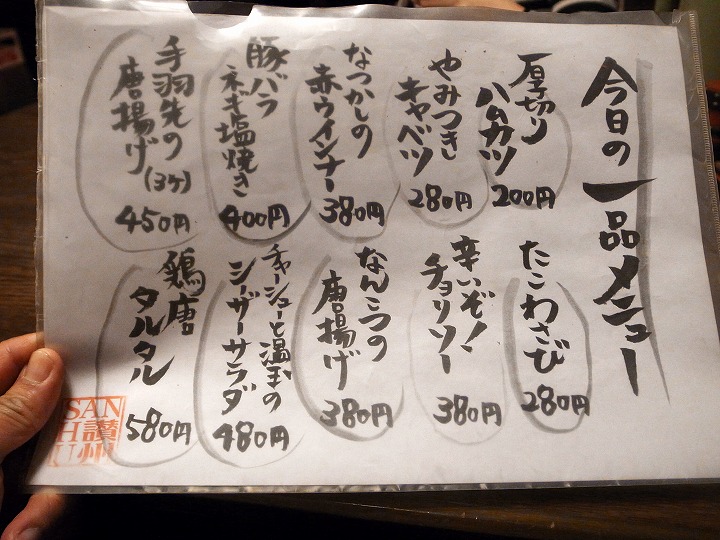 今日の一品メニュー
厚切り
ハムカツ
200円
やみつき
キャベツ
280円
なつかしの
赤ウインナー
380円
豚バラ
ネギ塩焼き
400円
手羽先の
唐揚げ
(3ヶ)
450円
たこわさび
280円
辛いぞ!
チョリソー
380円
なんこつの
唐揚げ
380円
チャーシューと温玉の
シーザーサラダ
480円
鶏唐
タルタル
580円
SAN
讃
SH
州
U